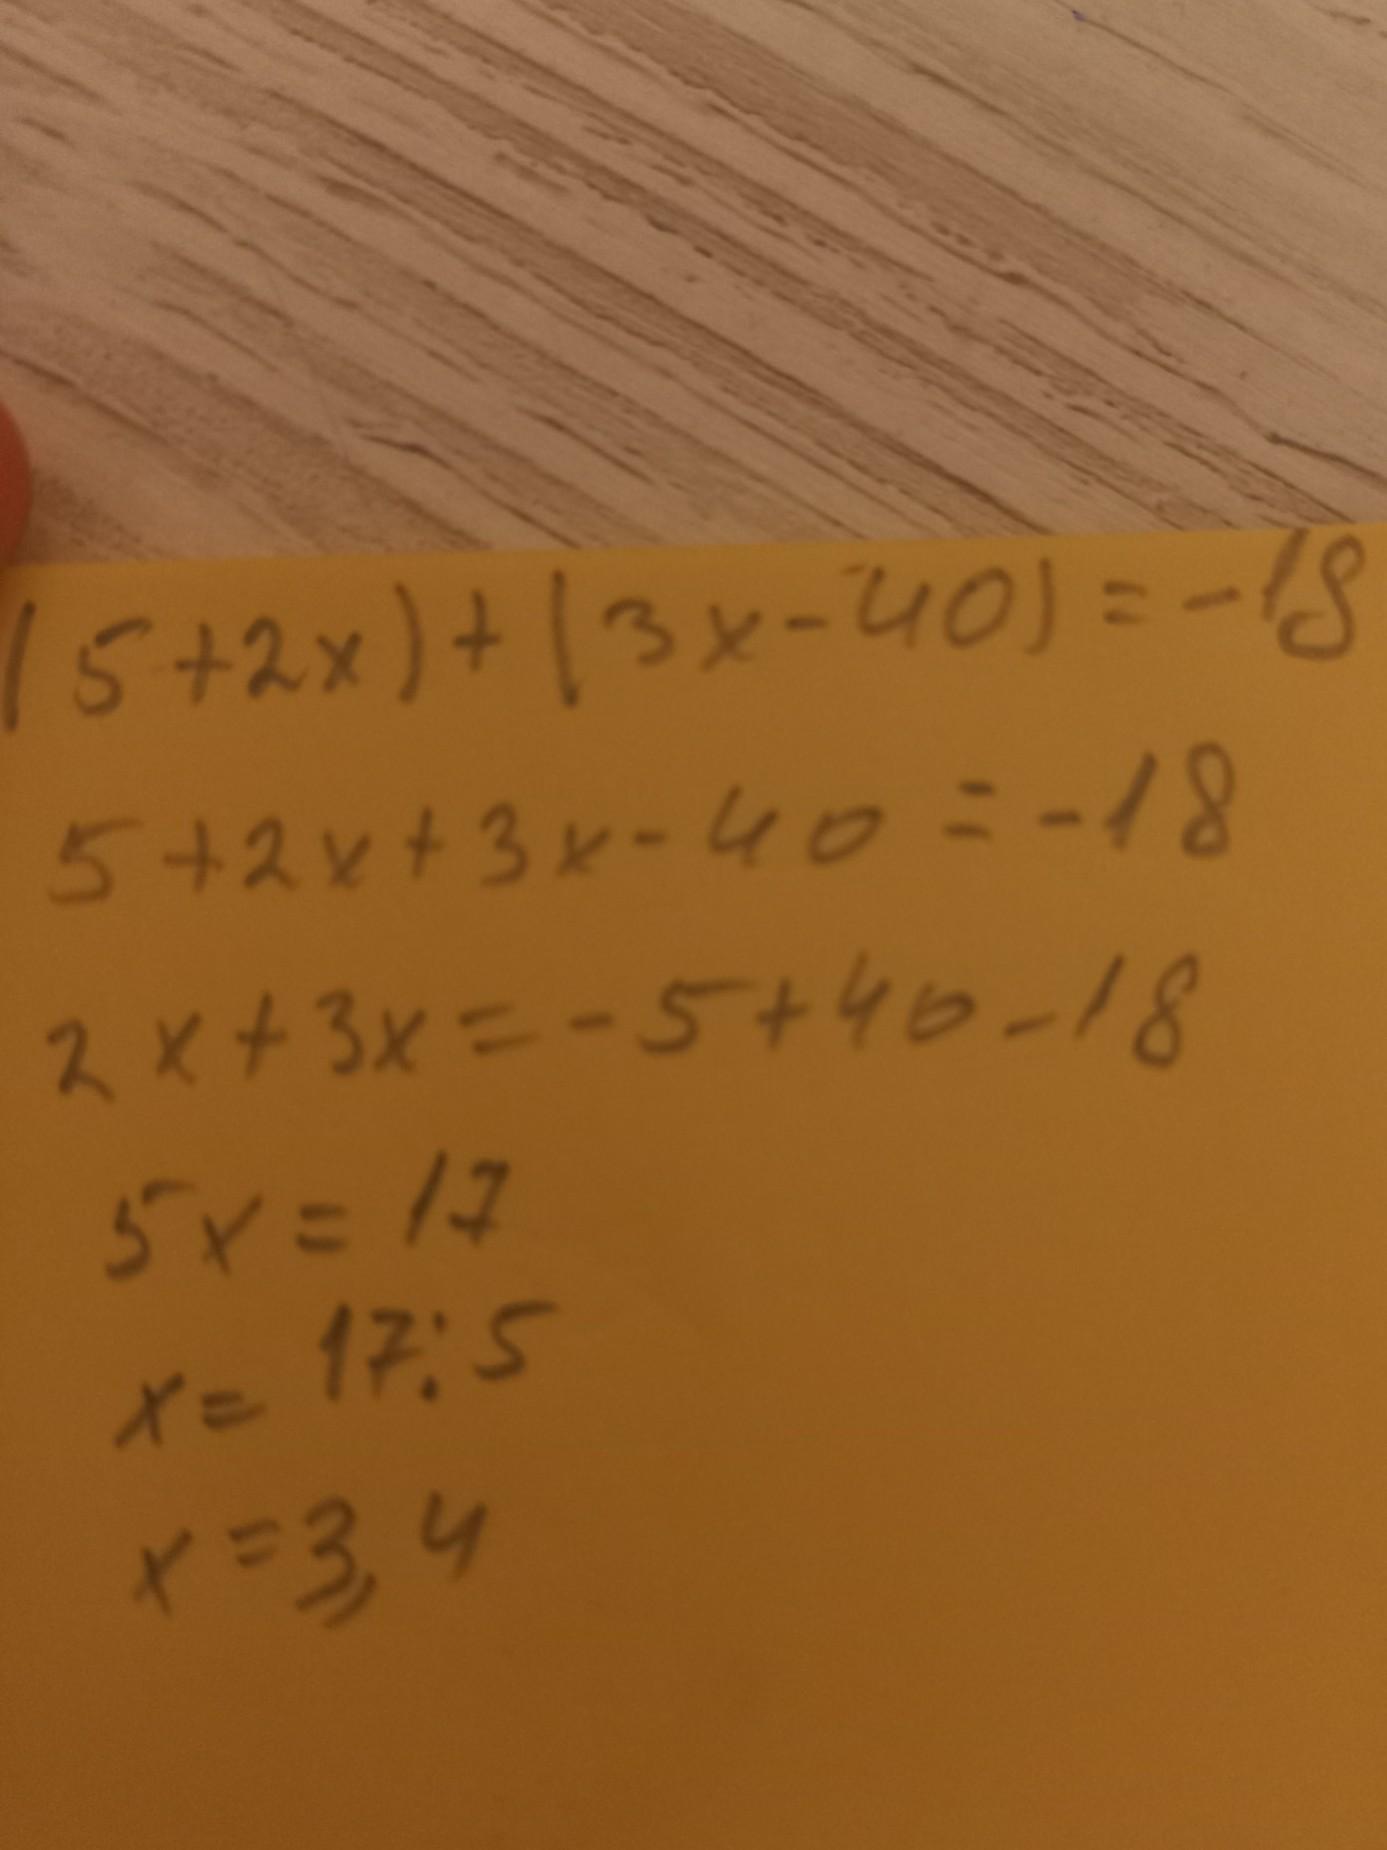 (5+2x)+(3x-40)=-18
5+2x+3x-40=-18
2x+3x=-5+40-18
5x=17
x=17:5
x=3,4